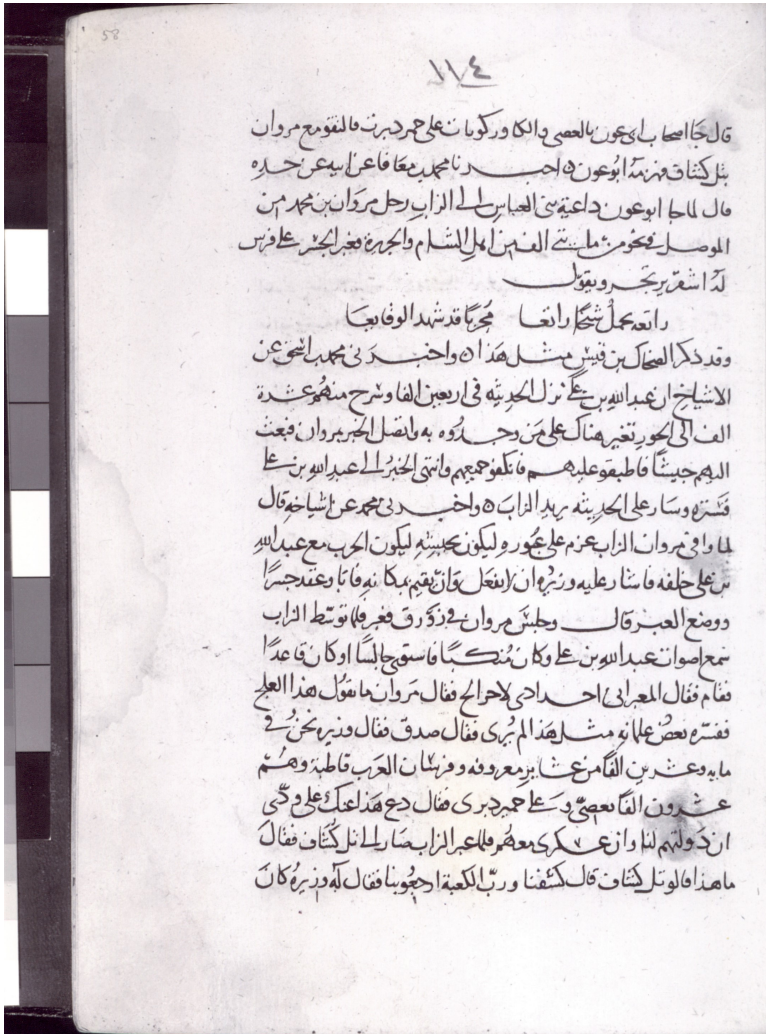 58
١١٤
قال جا اصحاب ابى عون بالعصى والكاوركوبات على حمر دبرت فالتقو مع مروان
بتل كشاف فهزمه ابو عون ه اخبرنا محمد بن معافا عن ابيه عن جده
قال لما جا ابو عون داعية بنى العباس الى الزاب رحل مروان بن محمد من
الموصل فى نحو من الفين اهل الشام والجزيرة فعبر الجسر على فرس
له اشقر يرتجز ويقول
رائعه تحمل شيخا رائعا مجربا قد شهد الوقايعا
وقد ذكر الضحاك بن قيس مثل هذا ه واخبرنى محمد بن اسحق عن
الاشياخ ان عبد الله بن على نزل الحديثه فى اربعين الفا وسرح منهم عشرة
الف الى تغير هناك على من وجدوه به واتصل الخبر بمروان فبعث
اليهم جيشا فاطبقو عليهم جميعهم وانتهى الخبر الى عبد الله بن على
فستره وسار على الحديثه يريد الزاب ه واخبرنى محمد عن اشياخه قال
لما وافى مروان الزاب عزم على عبوره ليكون الحرب مع عبد الله
بن على خلفه فاشار عليه وزيره ان لا يفعل وان يقيم بمكانه فابا وعقد جسرا
ووضع العبر قال وجلس مروان فى زورق فعبر فلما توسط الزاب
سمع اصوات عبد الله بن على وكان متكيا فاستوى جالسا او كان قاعدا
فقام فقال المعبرانى فقال مروان ما يقول هذا العلج
ففسره بعض غلمانه مثل هذا لم يرى فقال صدق فقال وزيره نحن فى
مايه وعشرين الفا من عشاير معروفه وفرسان العرب قاطبة وهم
عشرون الفا بعصى وعلى حمير دبرى فقال دع هذا عنك على ودى
ان دولتهم لنا وان عسكرى معهم فلما عبر الزاب صار الى تل كشاف فقال
ما هذا قالو تل كشاف قال كشفنا ورب الكعبة ارجعو بنا فقال له وزيره كان